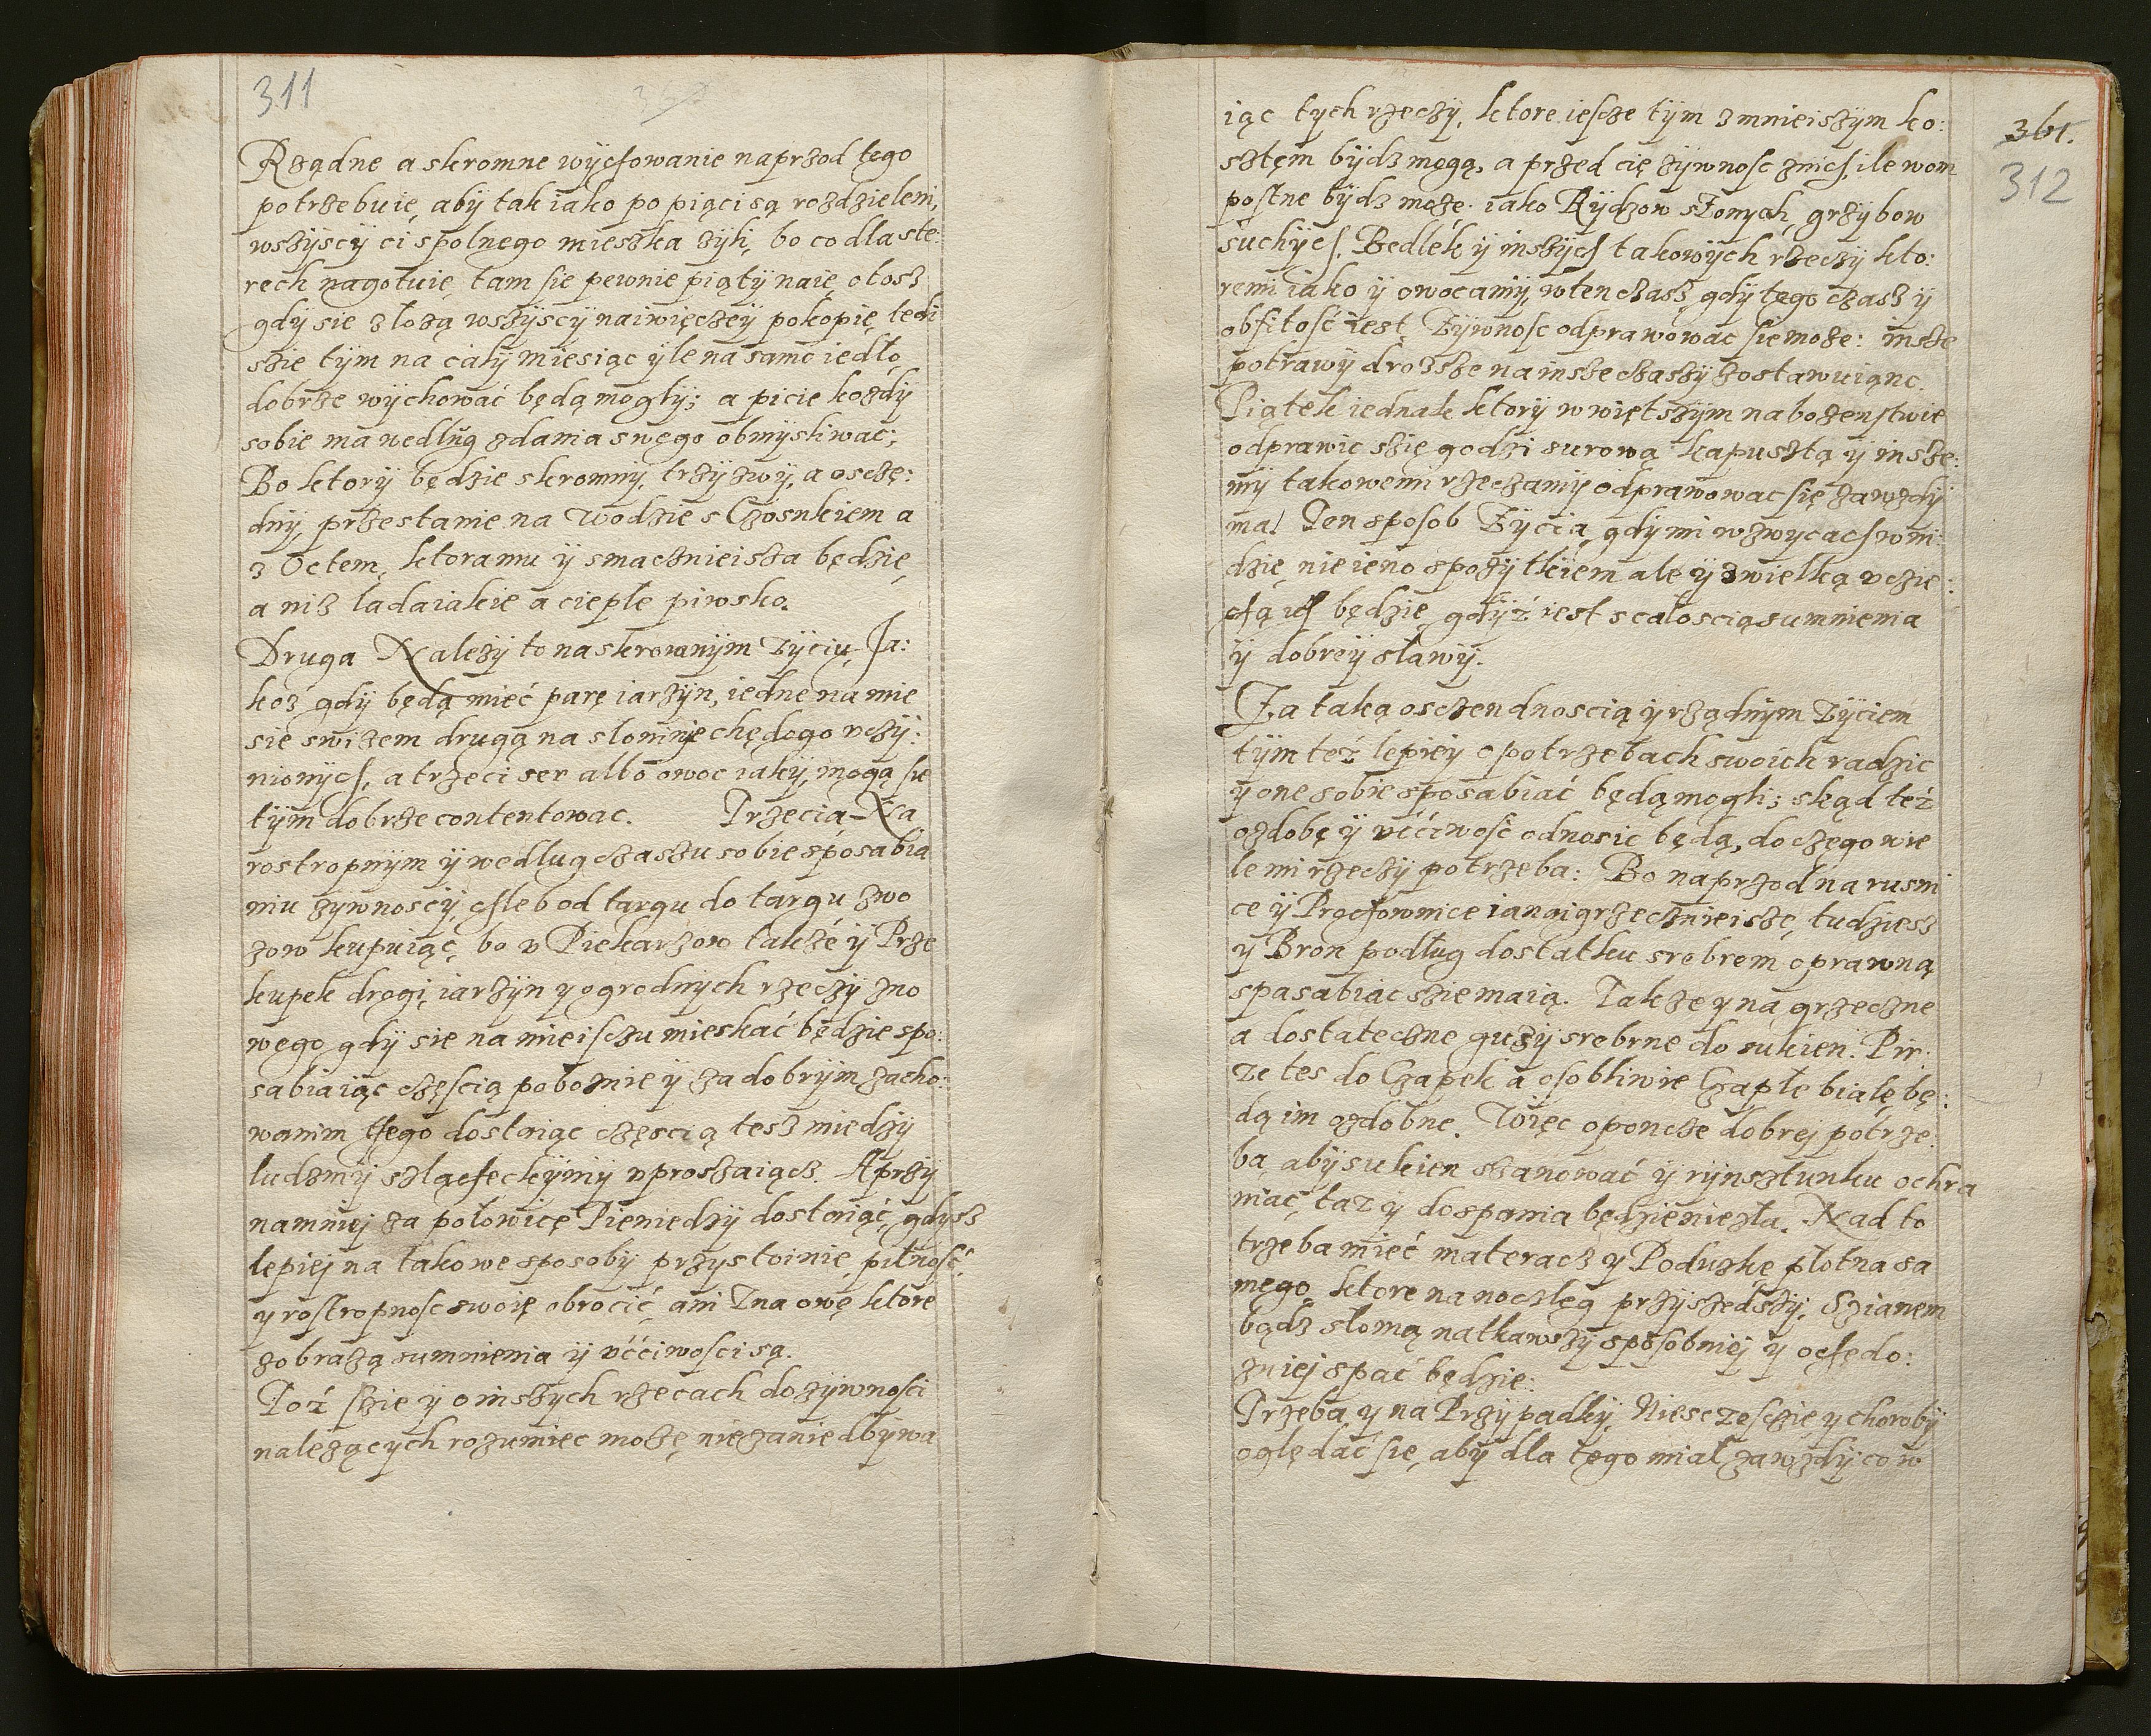 311
Rządne a skromne wychowanie naprzod tego
potrzebuie, aby tak iako po piąci są rozdzieleni,
wszyscy ci spolnego mieszka żyli, bo co dla ste:
rech nagotuie, tam sie pewnie piąty naie, otosz
gdy sie złożą wszyscy naiwięczey po kopie, tedi
szie tym na cały miesiąc yle na samo iedło
dobrze wychować będą mogły; a picie kożdy
sobie ma wedlug zdania swego obmysliwać;
Bo ktory będzie skromny, trzyzwy, a oszczę:
dny, przestanie na wodzie s Czosnkiem a
z Octem, ktora mu y smacznieisza będzie,
a niz ladaiakie a ciepłe piwsko.
Druga Należy to na skromnym życiu, Ja:
koz gdy będą mieć parę iarzyn, iedne na mie
sie swizem drugą na słominie chędogo uczy:
nionych, a trzeci ser albo owoc iaky, mogą sie
tym dobrze contentowac. Trzecia Na
rostropnym y według czaszu sobie sposabia
niu zywnoscy, chleb od targu do targu zwo
zow kupuiąc, bo u Piekarzow także y Prze
kupek drogi, iarzyn y ogrodnych rzeczy zno
wego gdy sie na mieisczu mieskać będzie spo:
sabiaiąc częscią pobożnie y za dobrym zacho:
wanim tego dostaiąc częscią tesz miedzy
ludzmy szlacheckymy uproszaiącz. A przy
namniej za połowicę Pieniedzy dostaiąć, gdysz
lepiej na takowe sposoby przystoinie, pilność,
y rostropnosc swoię obrocić, ani żna owę ktore
z obrazą sumnienia y uććiwosci są.
Toż szie y o inszych rzecach do żywnosci
nalezących rozumiec może, nie zaniedbywa
361.
312
iąc tych rzeczy, ktore iescze tym z mnieiszym ko:
sztem bydz mogą, a przed cię żywnosc znich, ile wom
postne bydz może. iako Rydzow słonych, grzybow
suchych, Bedlek y inszych takowych rzeczy kto:
remi iako y owocamy, w ten czasz gdy tego czasz y
obfitość iest, żywnosc odprawować sie może: insze
potrawy drozsze na insze czaszy zostawuiąnc.
Piątek iednak ktory w więtszym nabożenstwie
odprawic szię godzi surową kapusztą y insze:
my takowemi rzeczamy odprawowac się zawzdy
ma. Ten sposob Życia, gdy mi w zwycach wni:
dzie, nie ieno s pożytkiem ale y z wielką ucie:
chą ich będzie, gdyż iest s całoscią sumnienia
y dobrey sławy.
Za taką osczendnoscią y rządnym życiem
tym też lepiey o potrzebach swoich radzic
y one sobie sposabiać będą mogli; skąd też
ozdobę y uććiwość odnosic będą, do czego wie
le mi rzeczy potrzeba: Bo naprzod na rusni
ce y Prochownice ianaigrzecznieisze, tudziesz
y Bron podług dostatku srebrem oprawną
spasabiac szie maią. Także y na grzeczne
a dostateczne guzy srebrne do sukien. Pir:
że tes do Czapek a osobliwie Czaple białe bę:
dą im ozdobne. Więc o poncze dobrej potrze:
ba, aby sukien szanować y rynsztunku ochra
niać, taż y do spania będzie niezła. Nad to
trzeba mieć materacz y Poduszkę płotna sa
mego, ktore na noczleg przyszedszy, Szianem
bądz słomą natkawszy sposobniej y ochędo:
zniej spać będzie:
Trzeba y na Przypadky, Niesczęscie y choroby
oględać się, aby dla tego miał zawzdy co w